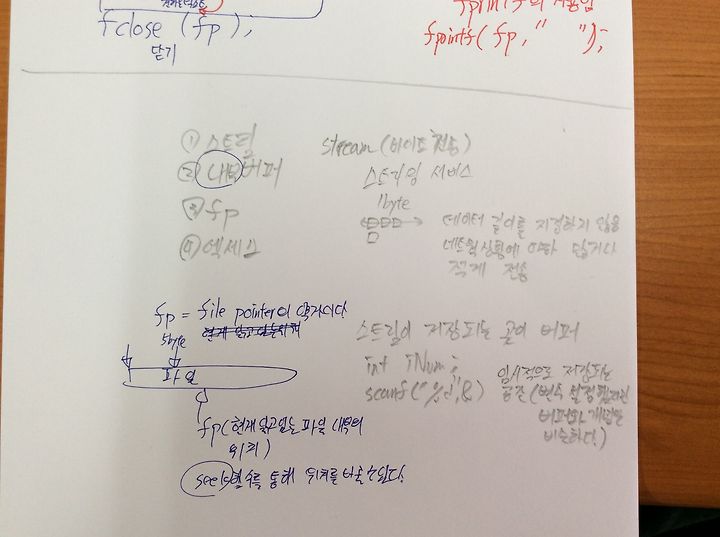 fclose (fp);
닫기
fprintf의 사용법
fpointf( fp, " ");
① 스트림
② 내부버퍼
③ fp
④ 엑세스
stream (바이트 전송)
스트리밍 서비스
1byte
데이터 길이를 지정하지 않음
네트웍상황에 따라 많거나
적게 전송
fp = file pointer의 약자이다
5byte
파일
fp(현재 읽고있는 파일 내부의
위치)
seek함수를 통해 위치를 바꿀수 있다.
스트림이 저장되는 곳이 버퍼
int iNum;
scanf("%d",&)
임시적으로 저장되는
공간 (변수
버퍼와 개념은
비슷하다.)